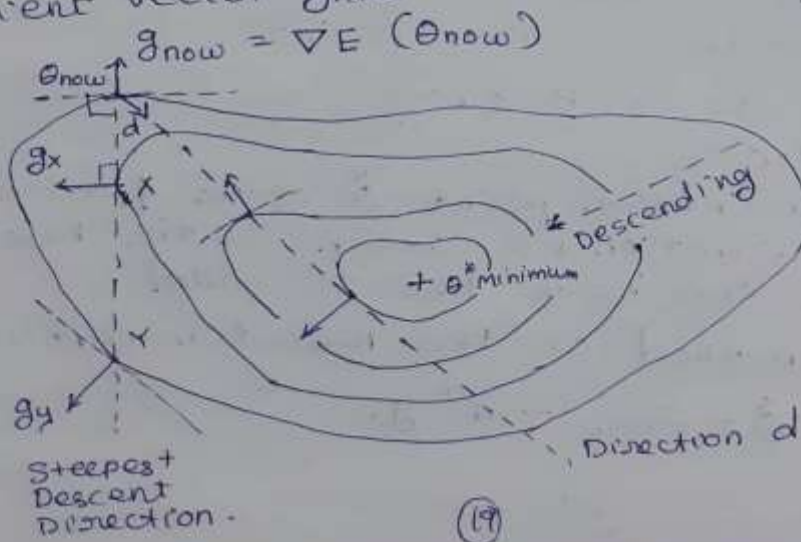 ient vector
g_now = ∇E (θnow)
θnow
d
gx
X
Descending
+ θ* Minimum
Y
gy
Direction d
Steepest
Descent
Direction.
(19)